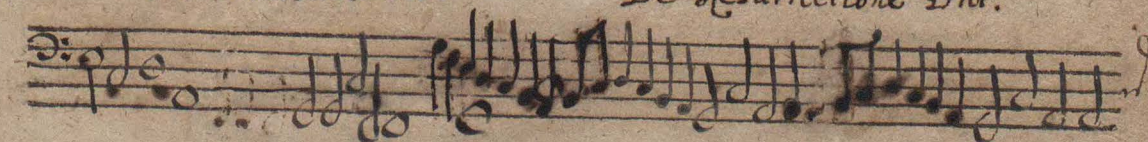 De Resurrectione Dni.